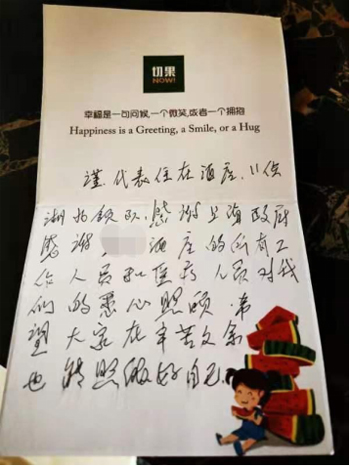 切果
NOW!
幸福是一句问候,一个微笑,或者一个拥抱
Happiness is a Greeting, a Smile, or a Hug
谨代表住在酒店,11位
湖北 队,感谢上海政府
感谢 酒店的所有工
作人员和医疗人员对我
们的悉心照顾,希
望大家在辛苦之余
也 照 好自己